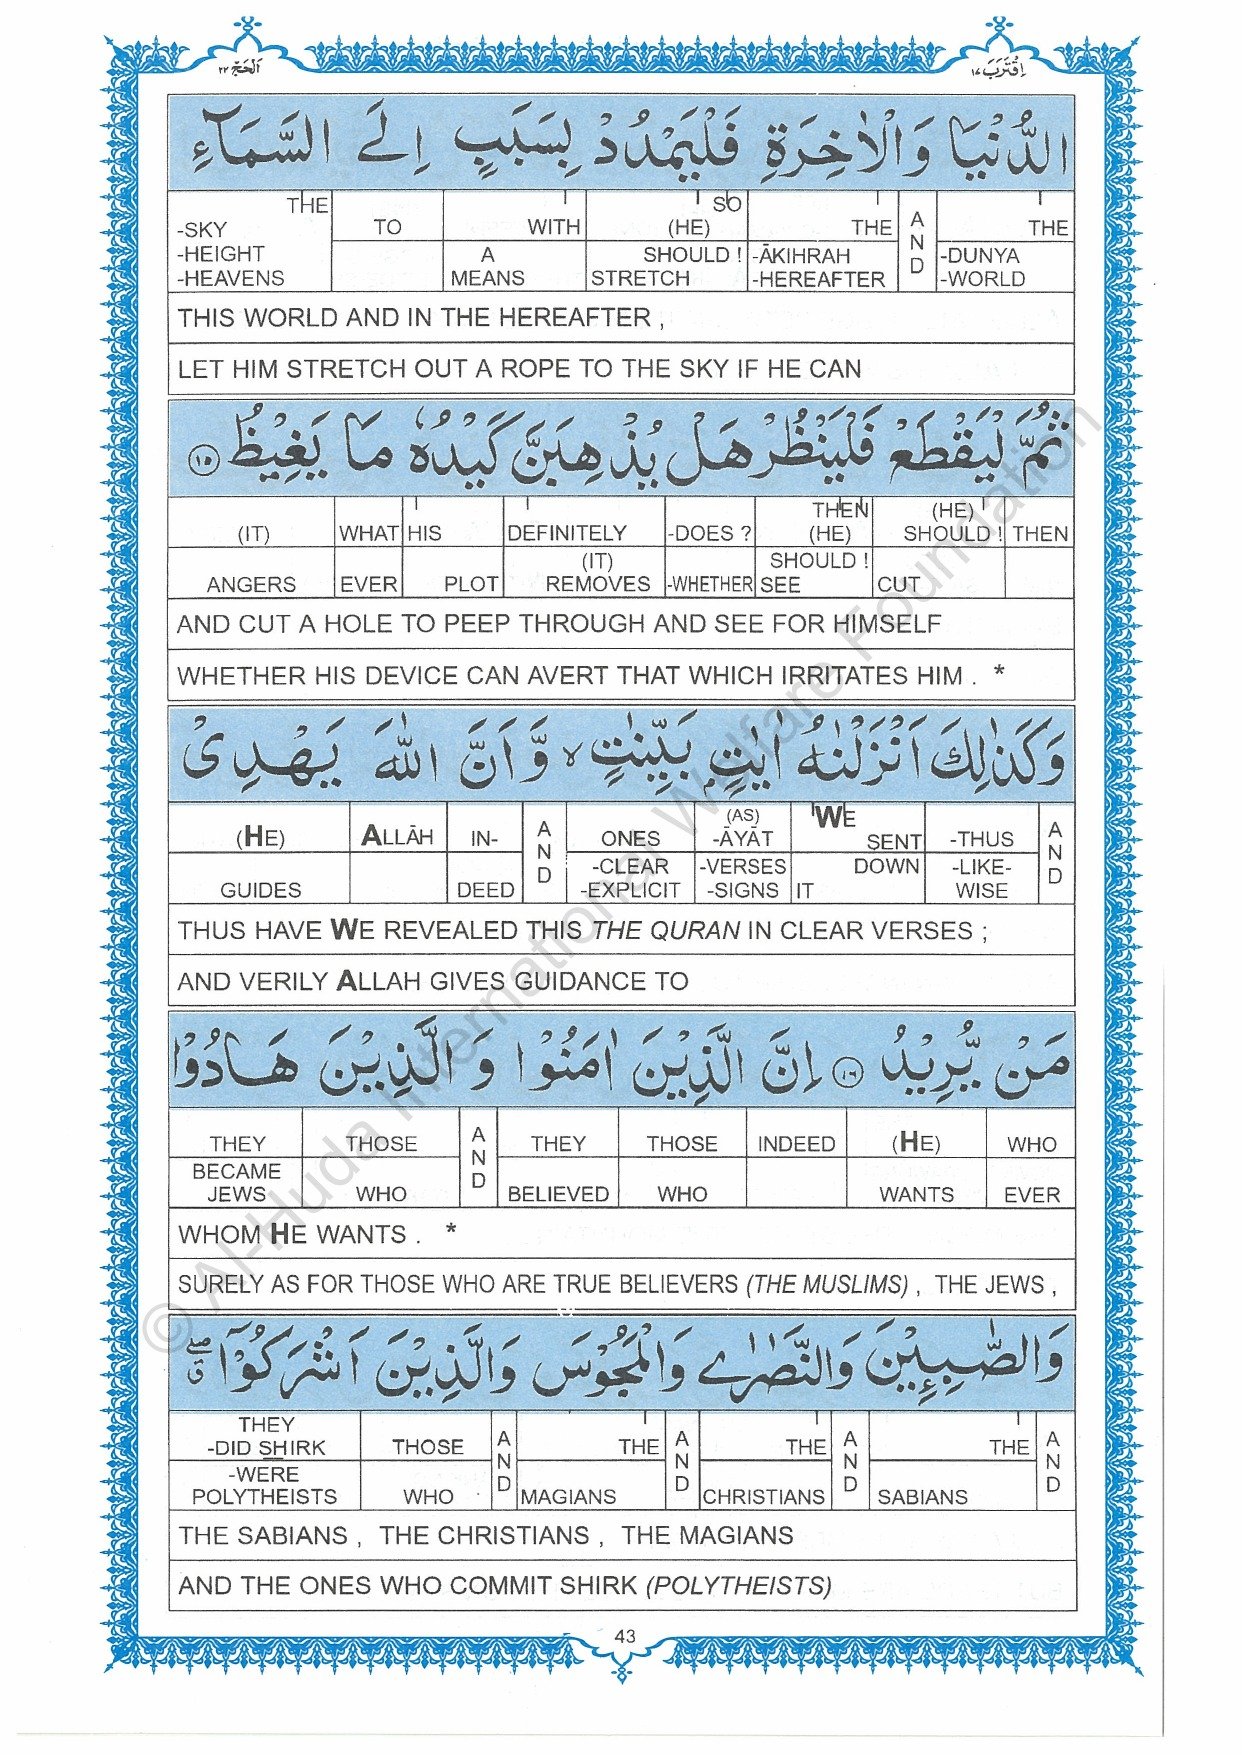 اَلْحَجّ ٢٢
اِقْتَرَبَ ١٧
الدُّنْيَا وَالْاٰخِرَةِ فَلْيَمْدُدْ بِسَبَبٍ اِلَى السَّمَآءِ
THE SO
-SKY TO WITH (HE) THE AND THE
-HEIGHT A SHOULD ! -ĀKIHRAH -DUNYA
-HEAVENS MEANS STRETCH -HEREAFTER -WORLD
THIS WORLD AND IN THE HEREAFTER ,
LET HIM STRETCH OUT A ROPE TO THE SKY IF HE CAN
ثُمَّ لْيَقْطَعْ فَلْيَنْظُرْ هَلْ يُذْهِبَنَّ كَيْدُهٗ مَا يَغِيْظُ ١٥
THEN (HE)
(IT) WHAT HIS DEFINITELY -DOES ? (HE) SHOULD ! THEN
(IT) SHOULD !
ANGERS EVER PLOT REMOVES -WHETHER SEE CUT
AND CUT A HOLE TO PEEP THROUGH AND SEE FOR HIMSELF
WHETHER HIS DEVICE CAN AVERT THAT WHICH IRRITATES HIM . *
وَكَذٰلِكَ اَنْزَلْنٰهُ اٰيٰتٍۭ بَيِّنٰتٍ ۙ وَّاَنَّ اللّٰهَ يَهْدِىْ
(AS) WE
(HE) ALLĀH IN- AND ONES -ĀYĀT SENT -THUS AND
-CLEAR -VERSES DOWN -LIKE-
GUIDES DEED -EXPLICIT -SIGNS IT WISE
THUS HAVE WE REVEALED THIS THE QURAN IN CLEAR VERSES ;
AND VERILY ALLAH GIVES GUIDANCE TO
مَنْ يُّرِيْدُ ١٦ اِنَّ الَّذِيْنَ اٰمَنُوْا وَالَّذِيْنَ هَادُوْا
THEY THOSE AND THEY THOSE INDEED (HE) WHO
BECAME
JEWS WHO BELIEVED WHO WANTS EVER
WHOM HE WANTS . *
SURELY AS FOR THOSE WHO ARE TRUE BELIEVERS (THE MUSLIMS) , THE JEWS ,
وَالصّٰبِـِٕيْنَ وَالنَّصٰرٰى وَالْمَجُوْسَ وَالَّذِيْنَ اَشْرَكُوْۤا ۖق
THEY
-DID SHIRK THOSE AND THE AND THE AND THE AND
-WERE
POLYTHEISTS WHO MAGIANS CHRISTIANS SABIANS
THE SABIANS , THE CHRISTIANS , THE MAGIANS
AND THE ONES WHO COMMIT SHIRK (POLYTHEISTS)
43
© Al-Huda International Welfare Foundation